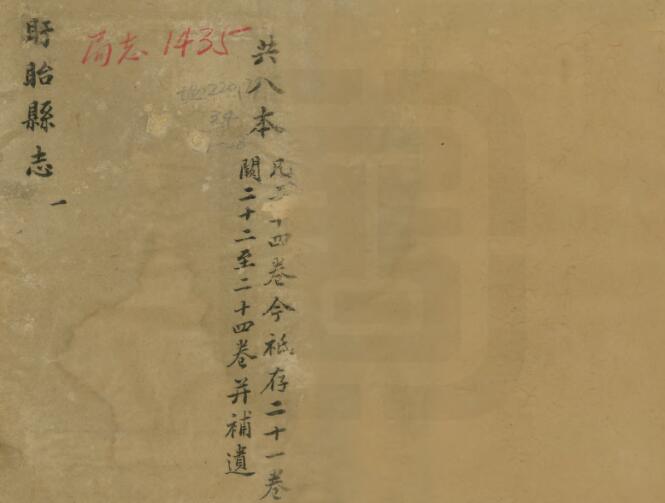 共八本
凡二十四卷今祗存二十一卷
闕二十二至二十四卷并補遺
盱眙縣志
一
局志 1435